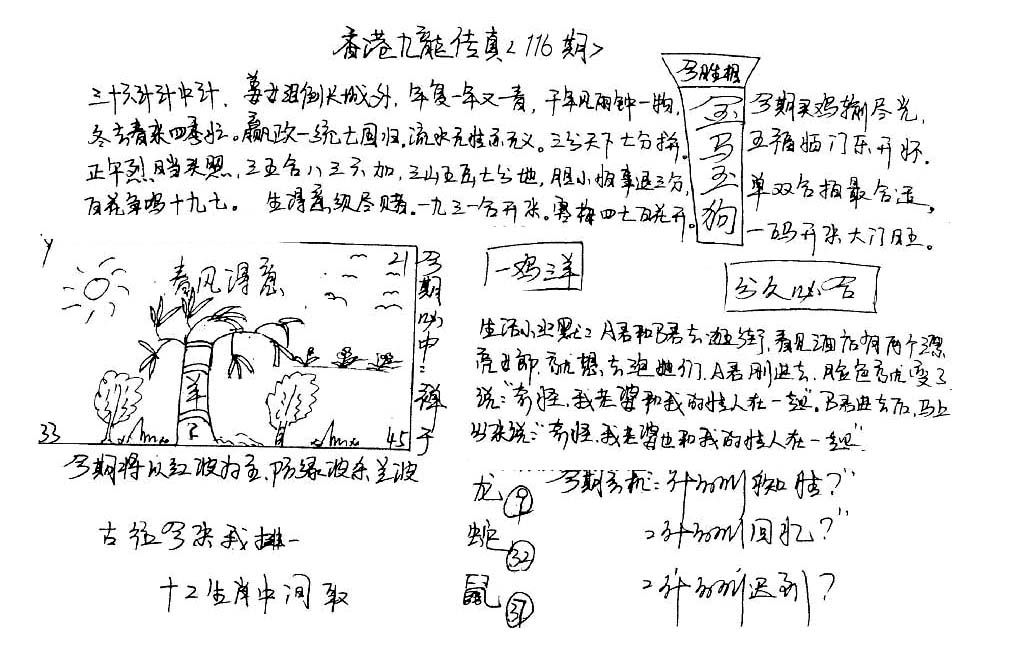 香港九龍传真<116期>
三十六计计中计，姜女泪倒长城外，年复一年又一春，千年见两钟一物，
冬去春来四季。嬴政一统七国归，流水无性亦无义。三分天下七分拚。
正午烈日当头照，三五合八三六加，三山五岳七分地，胆小怕事退三分，
百花争鸣十九七。生得意须尽赌。一九三一合开来。寒梅四七百花开。
今期买鸡输尽光，
五福临门乐开怀。
单双合指最合适，
一码开来大门旺。
金
马
玉
狗
春风得意
21
羊
33
45
今期必中：弹子
今期将以红波为主，防绿波杀兰波
一鸡三羊
分久必合
生活小幽默：A君和B君去逛街，看见酒店有两个漂
亮女郎，就想去泡她们，A君刚进去，脸色就变了
说："奇怪，我老婆和我的情人在一起"。B君进去后，马上
出来说："奇怪，我老婆也和我的情人在一起"
龙 9
蛇 32
鼠 37
今期玄机：
回忆？"
迟到？
古往今来我排一
十二生肖中间取